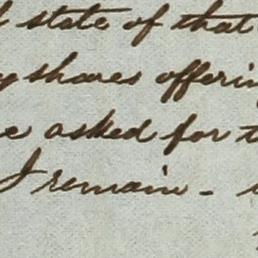 state of that
shares offering
asked for t
I remain -